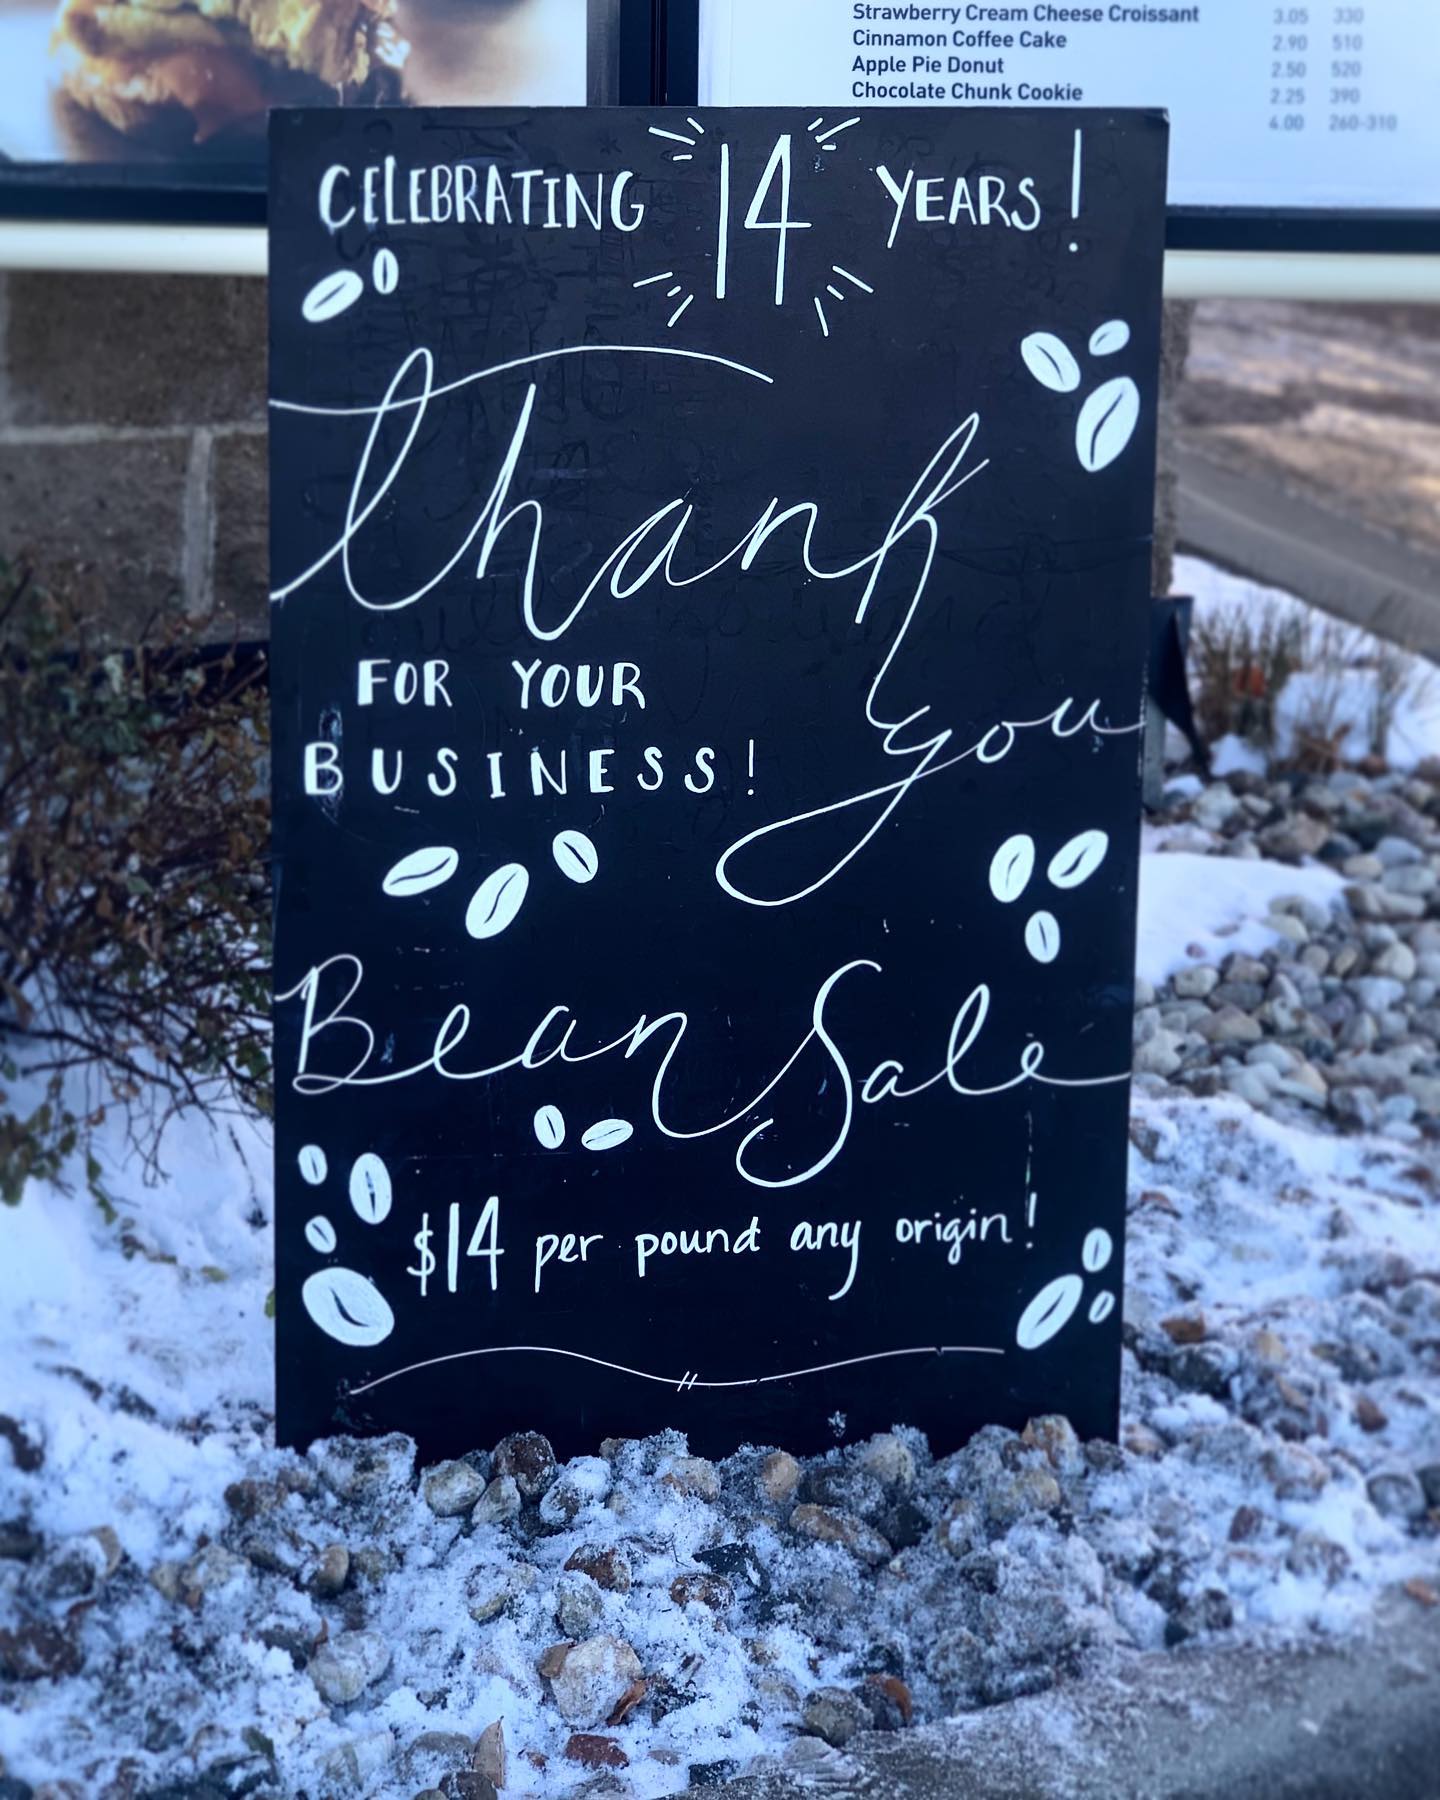 Strawberry Cream Cheese Croissant 3.05 330
Cinnamon Coffee Cake 2.90 510
Apple Pie Donut 2.50 520
Chocolate Chunk Cookie 2.25 390
4.00 260-310
CELEBRATING 14 YEARS!
Thank you
FOR YOUR
BUSINESS!
Bean Sale
$14 per pound any origin!